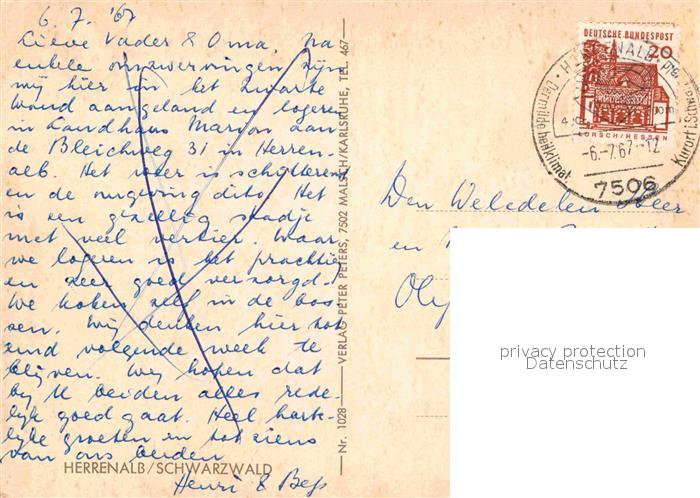 6.7.'67
Lieve Vader & Oma. Na
enkele omzwervingen zijn
wij hier in het zwarte
woud aangeland en logeren
in Landhaus Marion aan
de Bleichweg 31 in Herren-
alb. Het weer is schitterend
en de omgeving dito. Het
is een gezellig stadje
met veel vertier. Waar
we logeren is het prachtig
en zeer goed verzorgd.
We koken zelf in de bos-
sen. Wij denken hier tot
eind volgende week te
blijven. Wij hopen dat
bij U beiden alles rede-
lijk goed gaat. Heel harte-
lijke groeten en tot ziens
van ons beiden
Henri & Beps
HERRENALB/SCHWARZWALD
Nr. 1028 — VERLAG PETER PETERS, 7502 MALSCH/KARLSRUHE, TEL. 467 —
DEUTSCHE BUNDESPOST
20
LORSCH/HESSEN
-6.-7.67.-12
7506
Der milde Heilklimat.
Kurort i. Schw
Den Weledelen Heer
en
Oly
privacy protection
Datenschutz